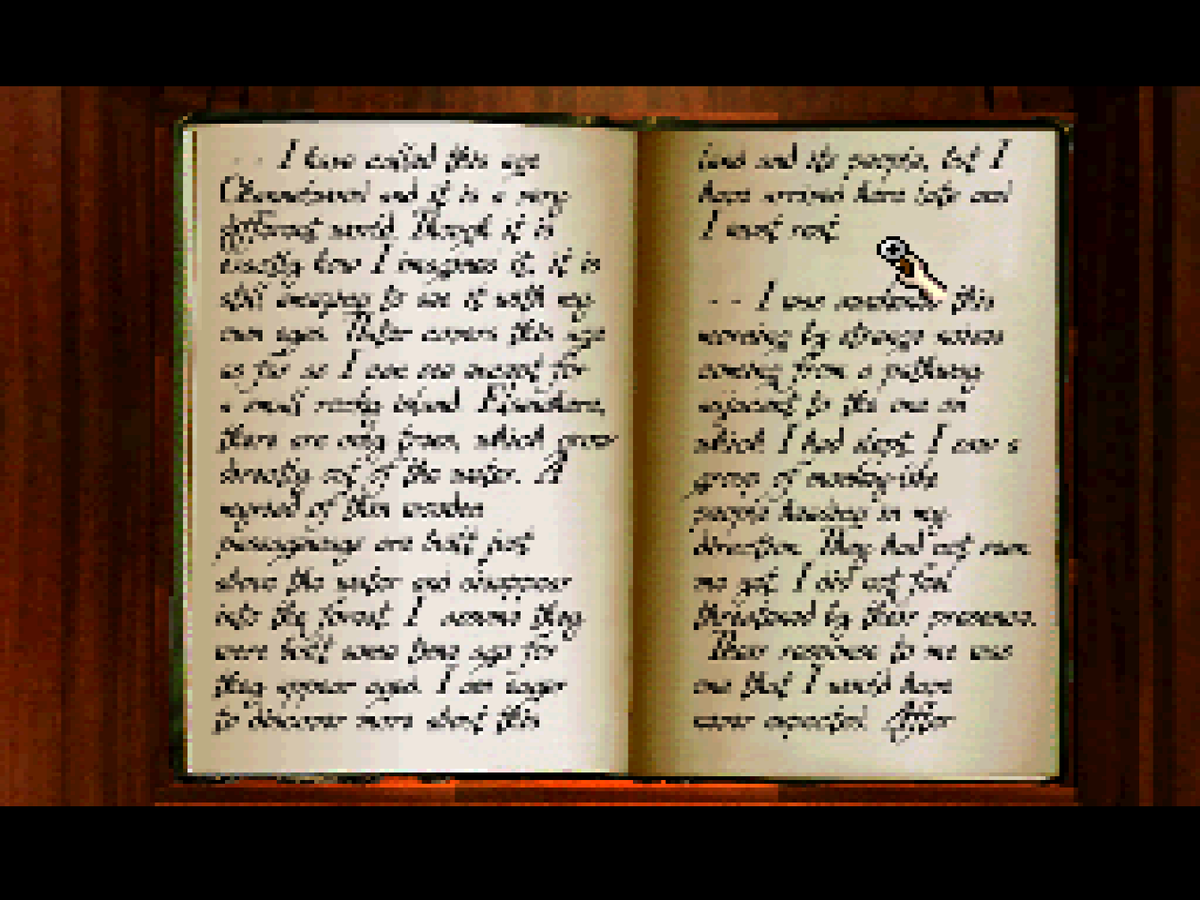 -- I have called this age
Channelwood and it is a very
different world. Though it is
exactly how I imagined it, it is
still amazing to see it with my
own eyes. Water covers this age
as far as I can see except for
a small rocky island. Elsewhere,
there are only trees, which grow
directly out of the water. A
myriad of thin wooden
passageways are built just
above the water and disappear
into the forest. I assume they
were built some time ago for
they appear aged. I am eager
to discover more about this
land and its people, but I
have arrived here late and
I must rest.
-- I was awakened this
morning by strange noises
coming from a pathway
adjacent to the one on
which I had slept. I saw a
group of monkey-like
people heading in my
direction. They had not seen
me yet. I did not feel
threatened by their presence.
Their response to me was
one that I would have
never expected. After